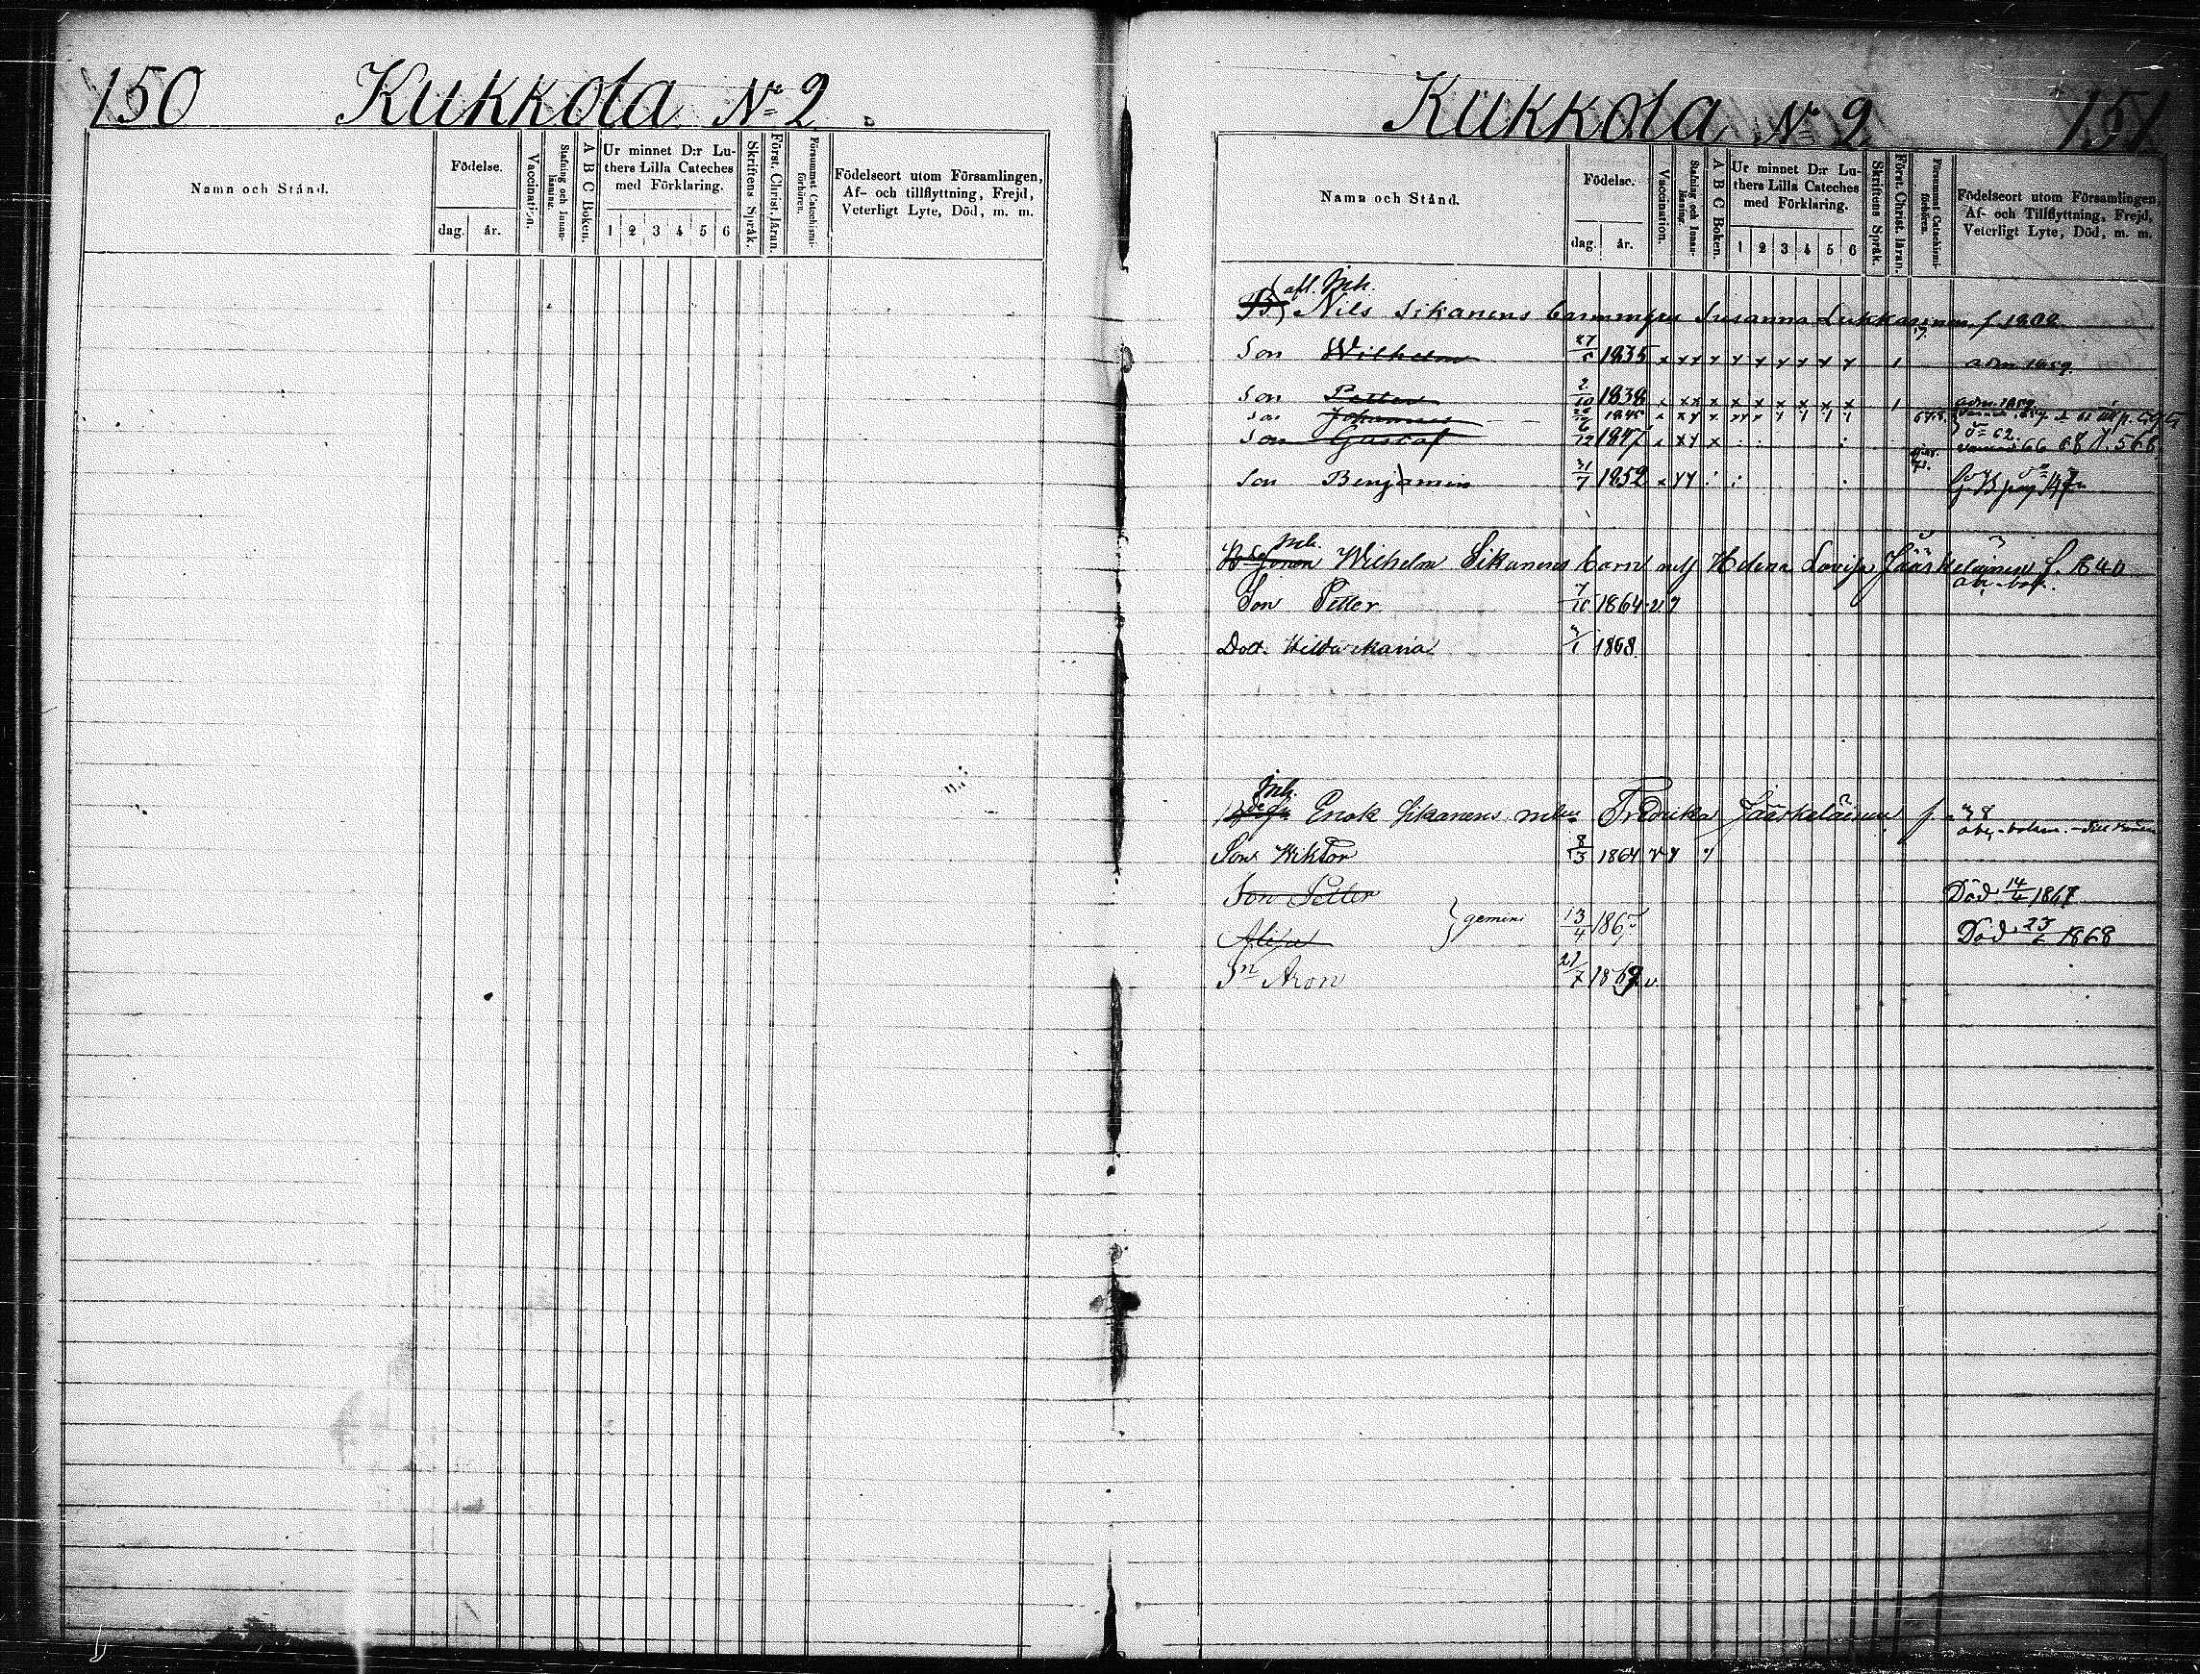 150 Kukkola № 2.
Namn och Stånd.
Födelse.
dag. år.
Vaccination.
Stafning och Innanläsning.
A B C Boken.
Ur minnet D:r Luthers Lilla Cateches med Förklaring.
1 2 3 4 5 6
Skriftens Språk.
Först. Christ. läran.
Försummat Catechismiförhören.
Födelseort utom Församlingen,
Af- och tillflyttning, Frejd,
Veterligt Lyte, Död, m. m.
Kukkola № 2 151.
Namn och Stånd.
Födelse.
dag. år.
Vaccination.
Stafning och Innanläsning.
A B C Boken.
Ur minnet D:r Luthers Lilla Cateches med Förklaring.
1 2 3 4 5 6
Skriftens Språk.
Först. Christ. läran.
Försummat Catechismiförhören.
Födelseort utom Församlingen,
Af- och Tillflyttning, Frejd,
Veterligt Lyte, Död, m. m.
afl. Inh.
B Nils Sikanens barn Susanna Lukkarinen f. 1802
Son Wilhelm 27/5 1835 adm 1859.
Son Petter 2/10 1838 adm. 1859
son Johannes 1845
Son Gustaf 6/12 1847 66 68 p. 568
Son Benjamin 31/7 1852
Inh.
Wilhelm Sikanens barn m/ Helena Lovisa Jääskeläinen f. 1840
Son Petter 7/11 1864
Dott. Hilda Maria 3/1 1868.
Inh.
Enok Sikanens Fredrika Jääskeläinen f. 38
Son Wiktor 8/3 1864
Son Petter Död 14/4 1867
} gemini 13/4 1867
Alisa Död 23/6 1868
Sn Aron 21/7 1869